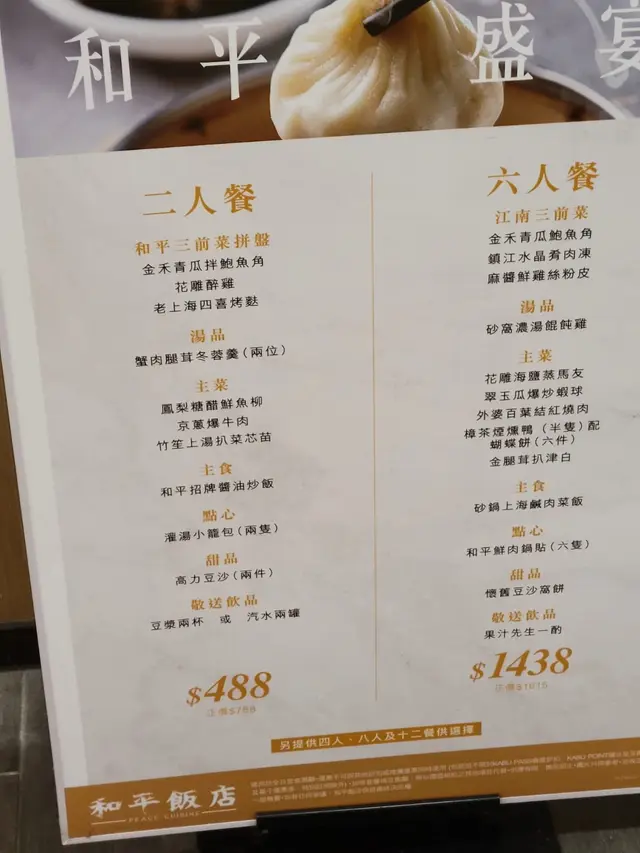 和平盛宴
二人餐
和平三前菜拼盤
金禾青瓜拌鮑魚角
花雕醉雞
老上海四喜烤麩
湯品
蟹肉腿茸冬蓉羹(兩位)
主菜
鳳梨糖醋鮮魚柳
京蔥爆牛肉
竹笙上湯扒菜芯苗
主食
和平招牌醬油炒飯
點心
灌湯小籠包(兩隻)
甜品
高力豆沙(兩件)
敬送飲品
豆漿兩杯 或 汽水兩罐
$488
六人餐
江南三前菜
金禾青瓜鮑魚角
鎮江水晶肴肉凍
麻醬鮮雞絲粉皮
湯品
砂窩濃湯餛飩雞
主菜
花雕海鹽蒸馬友
翠玉瓜爆炒蝦球
外婆百葉結紅燒肉
樟茶煙燻鴨 (半隻)配
蝴蝶餅(六件)
金腿茸扒津白
主食
砂鍋上海鹹肉菜飯
點心
和平鮮肉鍋貼(六隻)
甜品
懷舊豆沙窩餅
敬送飲品
果汁先生一酌
$1438
另提供四人、八人及十二餐供選擇
和平飯店
PEACE CUISINE